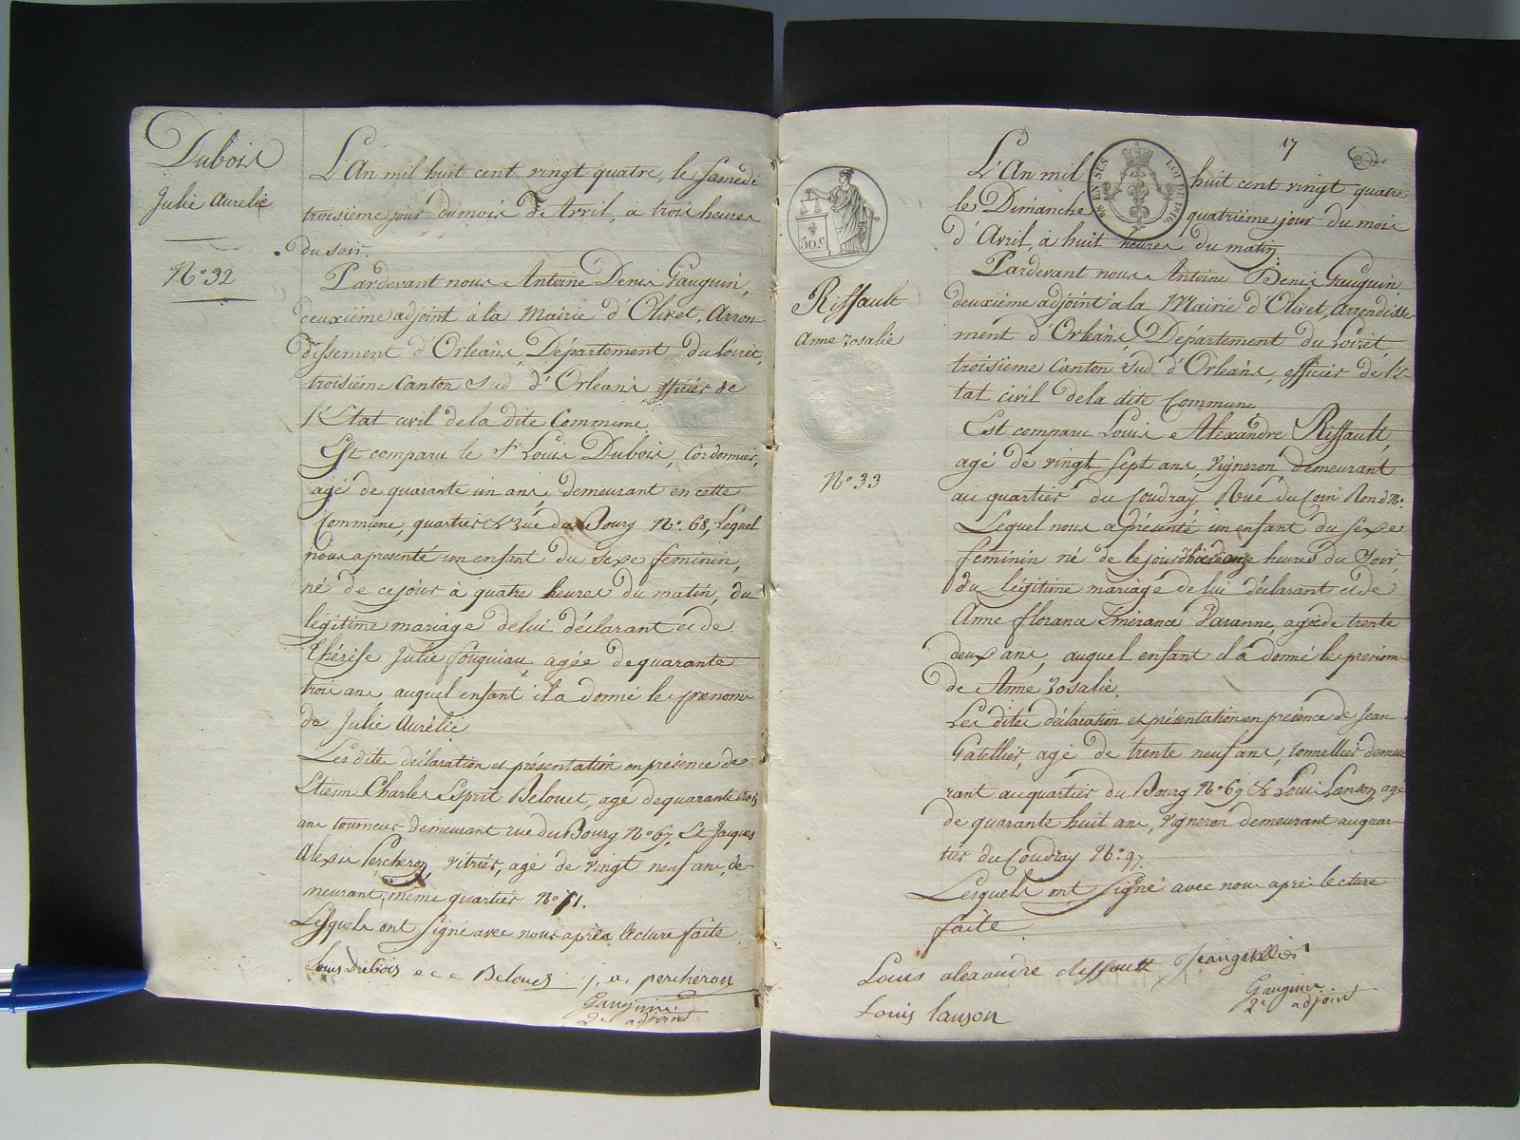 Dubois
Julie Aurelie
N.o 32
L'An mil huit cent vingt quatre, le Samedi
troisième jour du mois D'Avril, à trois heures
du soir.
Pardevant nous Antoine Denis Gauguin,
deuxième adjoint à la Mairie d'Olivet, Arron-
dissement d'Orléans, Département du Loiret,
troisième Canton Sud d'Orléans officier de
l'Etat civil de la dite Commune.
Est comparu le Sr Louis Dubois, Cordonnier,
agé de quarante un ans, demeurant en cette
Commune, quartier & rue du Bourg N.o 68, Lequel
nous a presenté un enfant du sexe feminin,
né de ce jour à quatre heures du matin, du
légitime mariage de lui déclarant et de
Thérèse Julie Fouquiau agée de quarante
trois ans auquel enfant il a donné le prenom
de Julie Aurélie
Les dite déclaration et présentation en présence de
Etienne Charles Esprit Belouet, agé de quarante trois
ans tourneur demeurant rue du Bourg N.o 67, Et Jacques
Alexis Percheron, vitrier, agé de vingt neuf ans, de-
meurant même quartier N.o 71.
Lesquels ont signé avec nous après lecture faite
Louis Dubois e c e Belouet j. a. percheron
Gauguin
2e adjoint
17
LOI DE 1816
30.c
Riffault
Anne rosalie
N.o 33
L'An mil huit cent vingt quatre
le Dimanche quatrième jour du mois
d'Avril, à huit heures du matin
Pardevant nous Antoine Denis Gauguin
deuxième adjoint à la Mairie d'Olivet, arrondisse-
ment d'Orléans, Département du Loiret
troisième Canton Sud d'Orléans, officier de l'E-
tat civil de la dite Commune
Est comparu Louis Alexandre Riffault,
agé de vingt sept ans, Vigneron demeurant
au quartier du Coudray Rue du Coin Rond N.o
Lequel nous a présenté un enfant du sexe
feminin né de le jour d'hier onze heures du soir,
du légitime mariage de lui déclarant et de
Anne florance Emerance Paranne, agée de trente
deux ans, auquel enfant il a donné le prenom
de Anne rosalie.
Les dites déclaration et présentation en présence de Jean
Gatellier, agé de trente neuf ans, tonnellier demeu-
rant au quartier du Bourg N.o 69 & Louis Lanson, agé
de quarante huit ans, vigneron demeurant au quar-
tier du Coudray N.o 97.
Lesquels ont signé avec nous après lecture
faite
Louis alexandre Riffault Jean gatellier
Louis lanson
Gauguin
2e adjoint